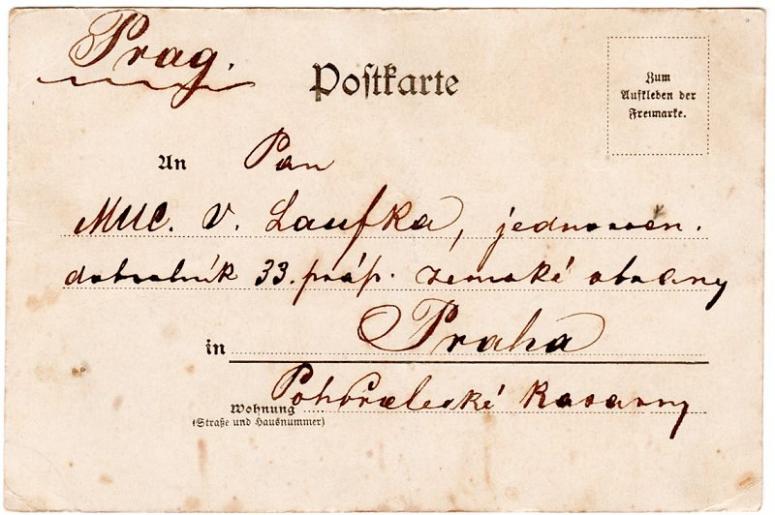 Prag.
Postkarte
Zum
Aufkleben der
Freimarke.
An Pan
MUC. V. Laufka, jednoroč.
dobrolník 33. práp. zemské obrany
in Praha
Pohořelecké Kasarny
Wohnung
(Straße und Hausnummer)